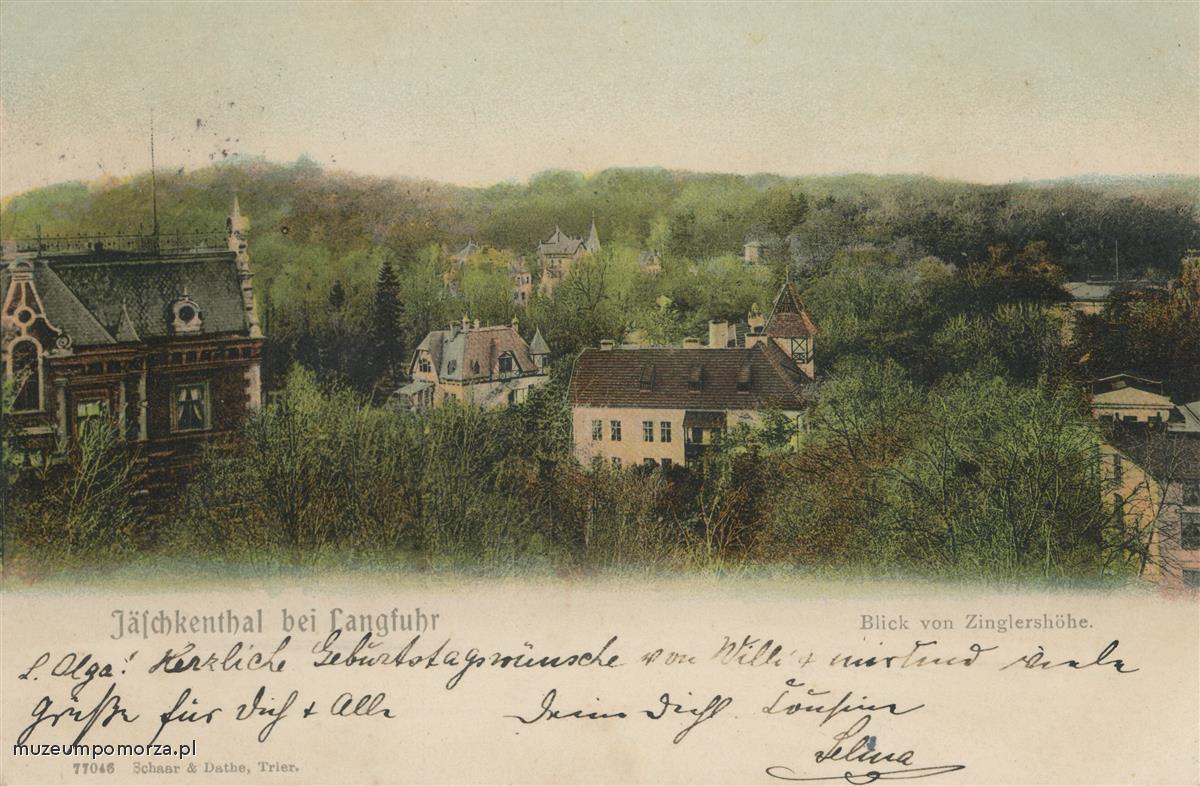 Jäſchkenthal bei Langfuhr
Blick von Zinglershöhe.
L. Olga! Herzliche Geburtstagswünsche von Willi + mir und viele
Grüße für Dich + Alle
Deine Dichl. Cousine
Selma
muzeumpomorza.pl
77046 Schaar & Dathe, Trier.